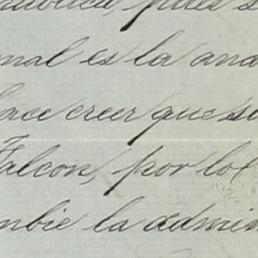 pues s
nal es la ana
hace creer que se
Falcon, por lo
mbie la admin